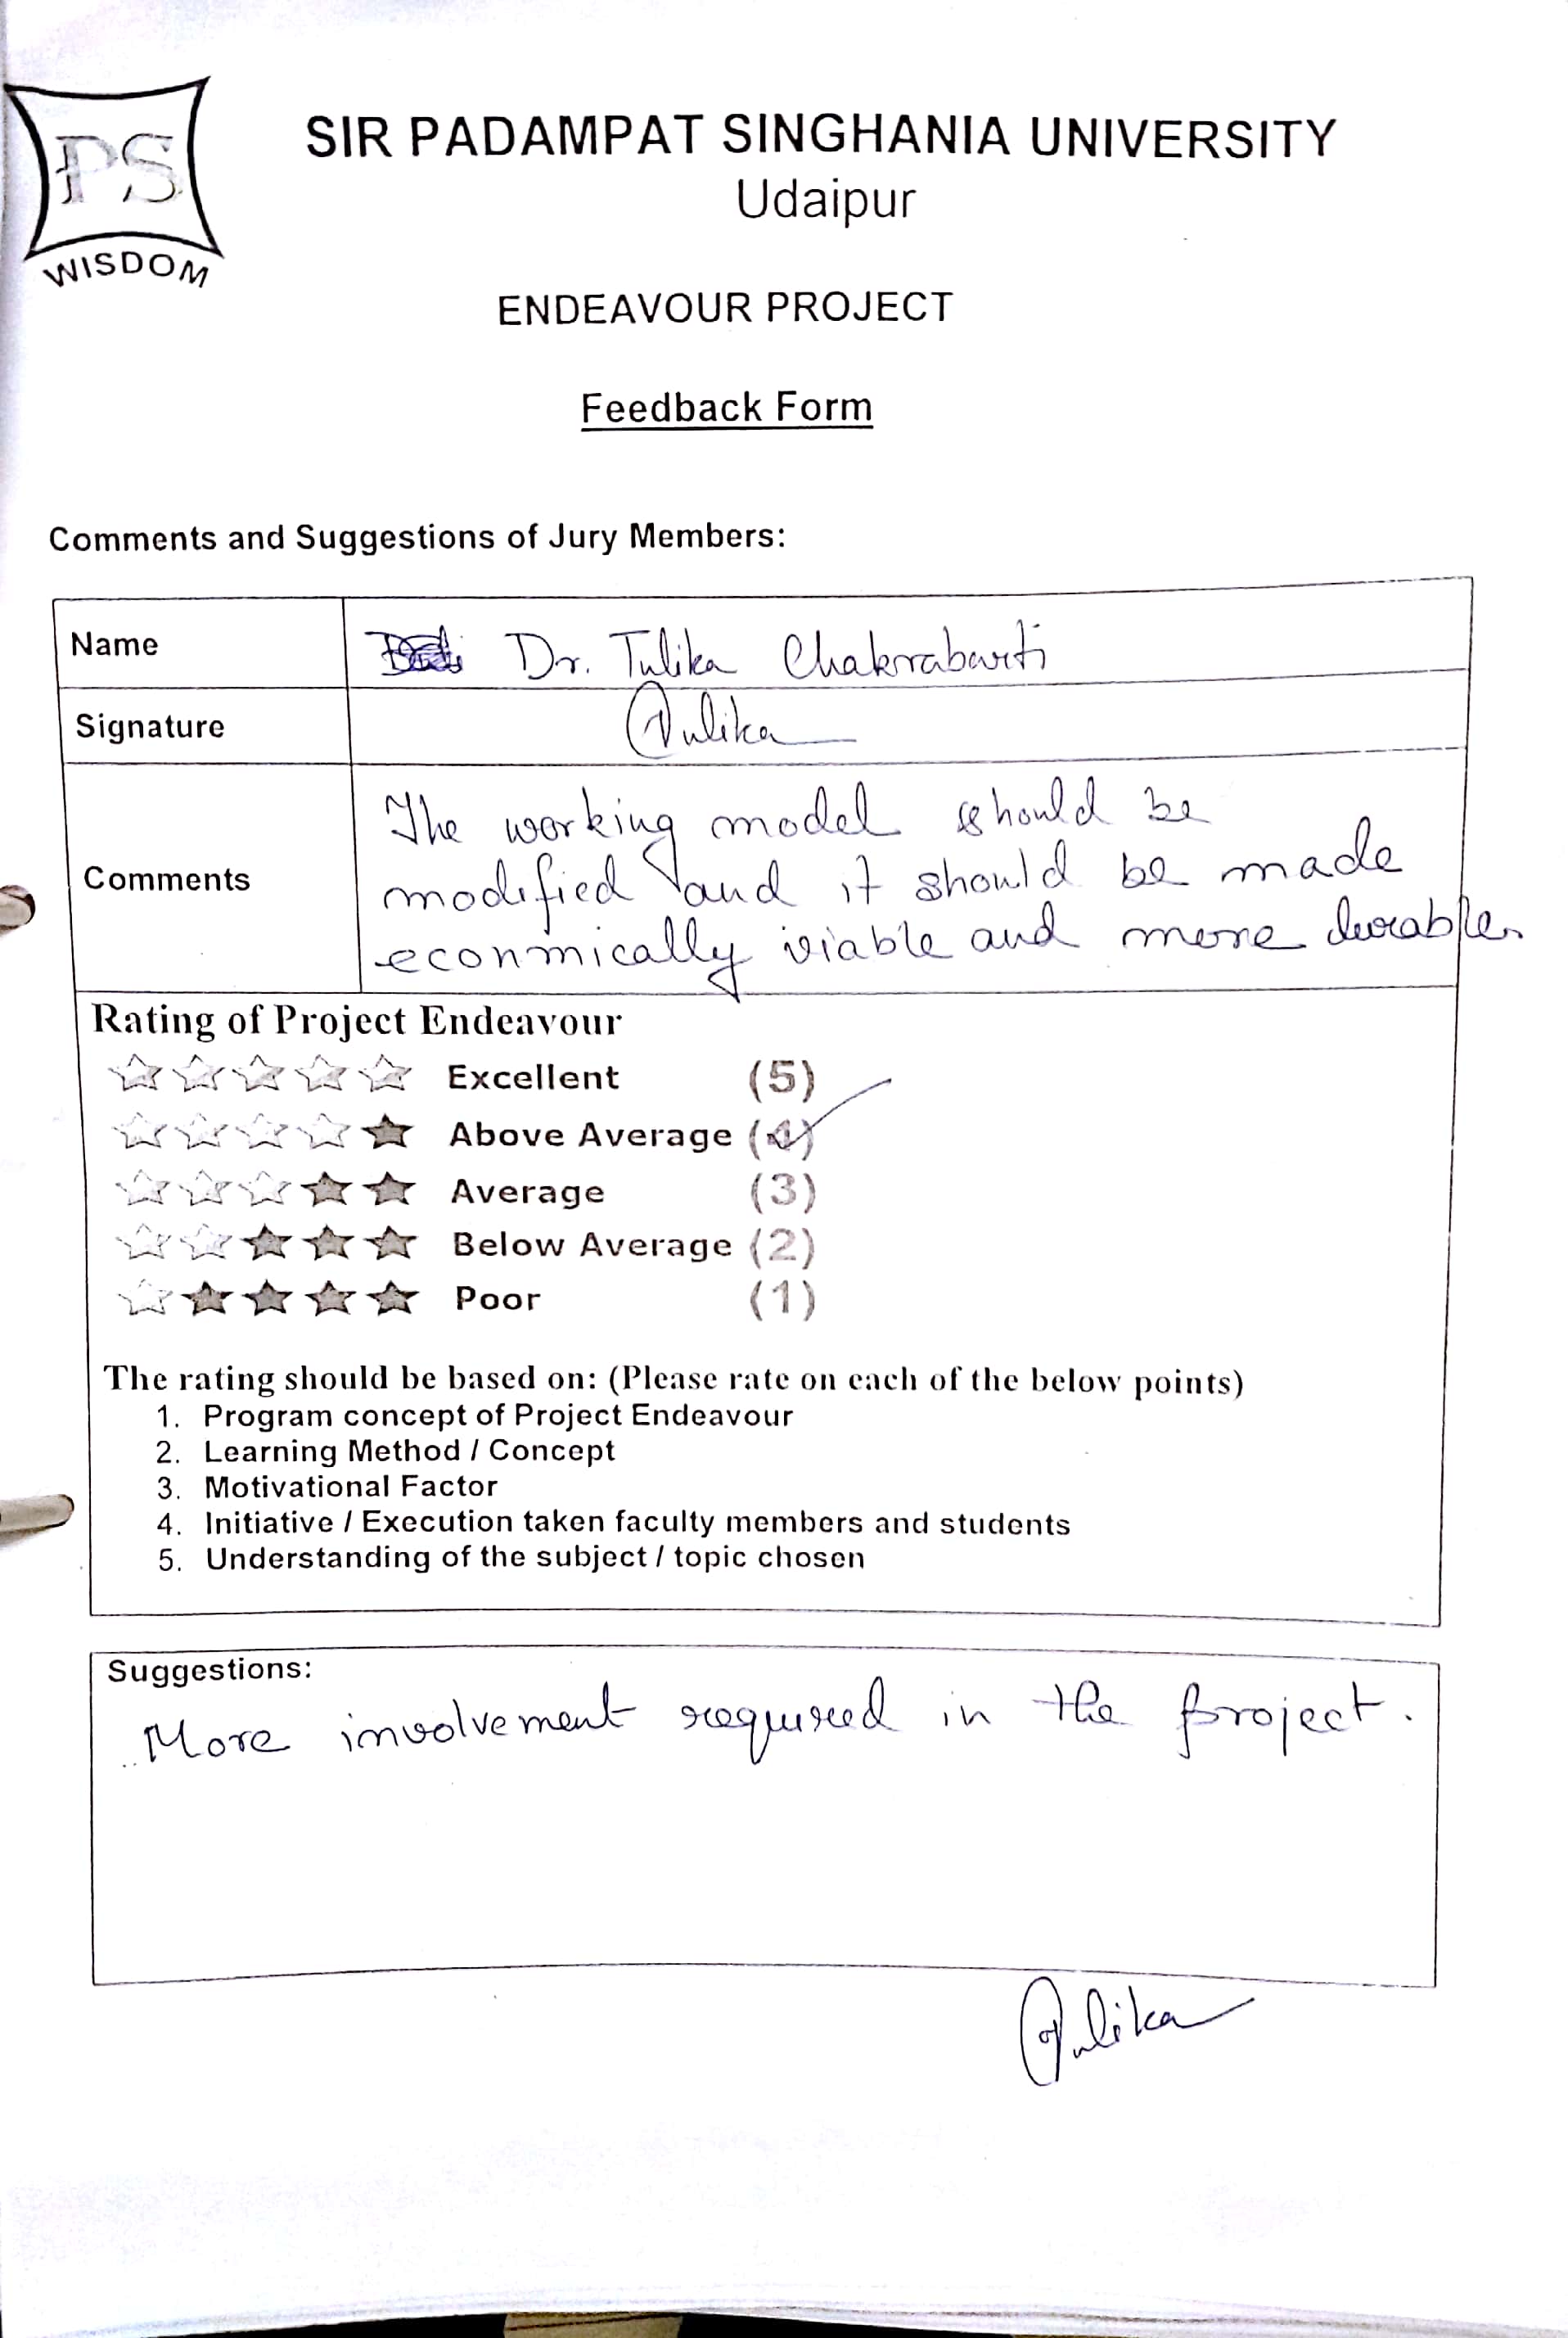 PS
WISDOM
SIR PADAMPAT SINGHANIA UNIVERSITY
Udaipur
ENDEAVOUR PROJECT
Feedback Form
Comments and Suggestions of Jury Members:
Name Dr. Tulika Chakrabarti
Signature Tulika
Comments
The working model should be
modified and it should be made
econmically viable and more durable.
Rating of Project Endeavour
Excellent (5)
Above Average (4)
Average (3)
Below Average (2)
Poor (1)
The rating should be based on: (Please rate on each of the below points)
1. Program concept of Project Endeavour
2. Learning Method / Concept
3. Motivational Factor
4. Initiative / Execution taken faculty members and students
5. Understanding of the subject / topic chosen
Suggestions:
More involvement required in the project.
Tulika